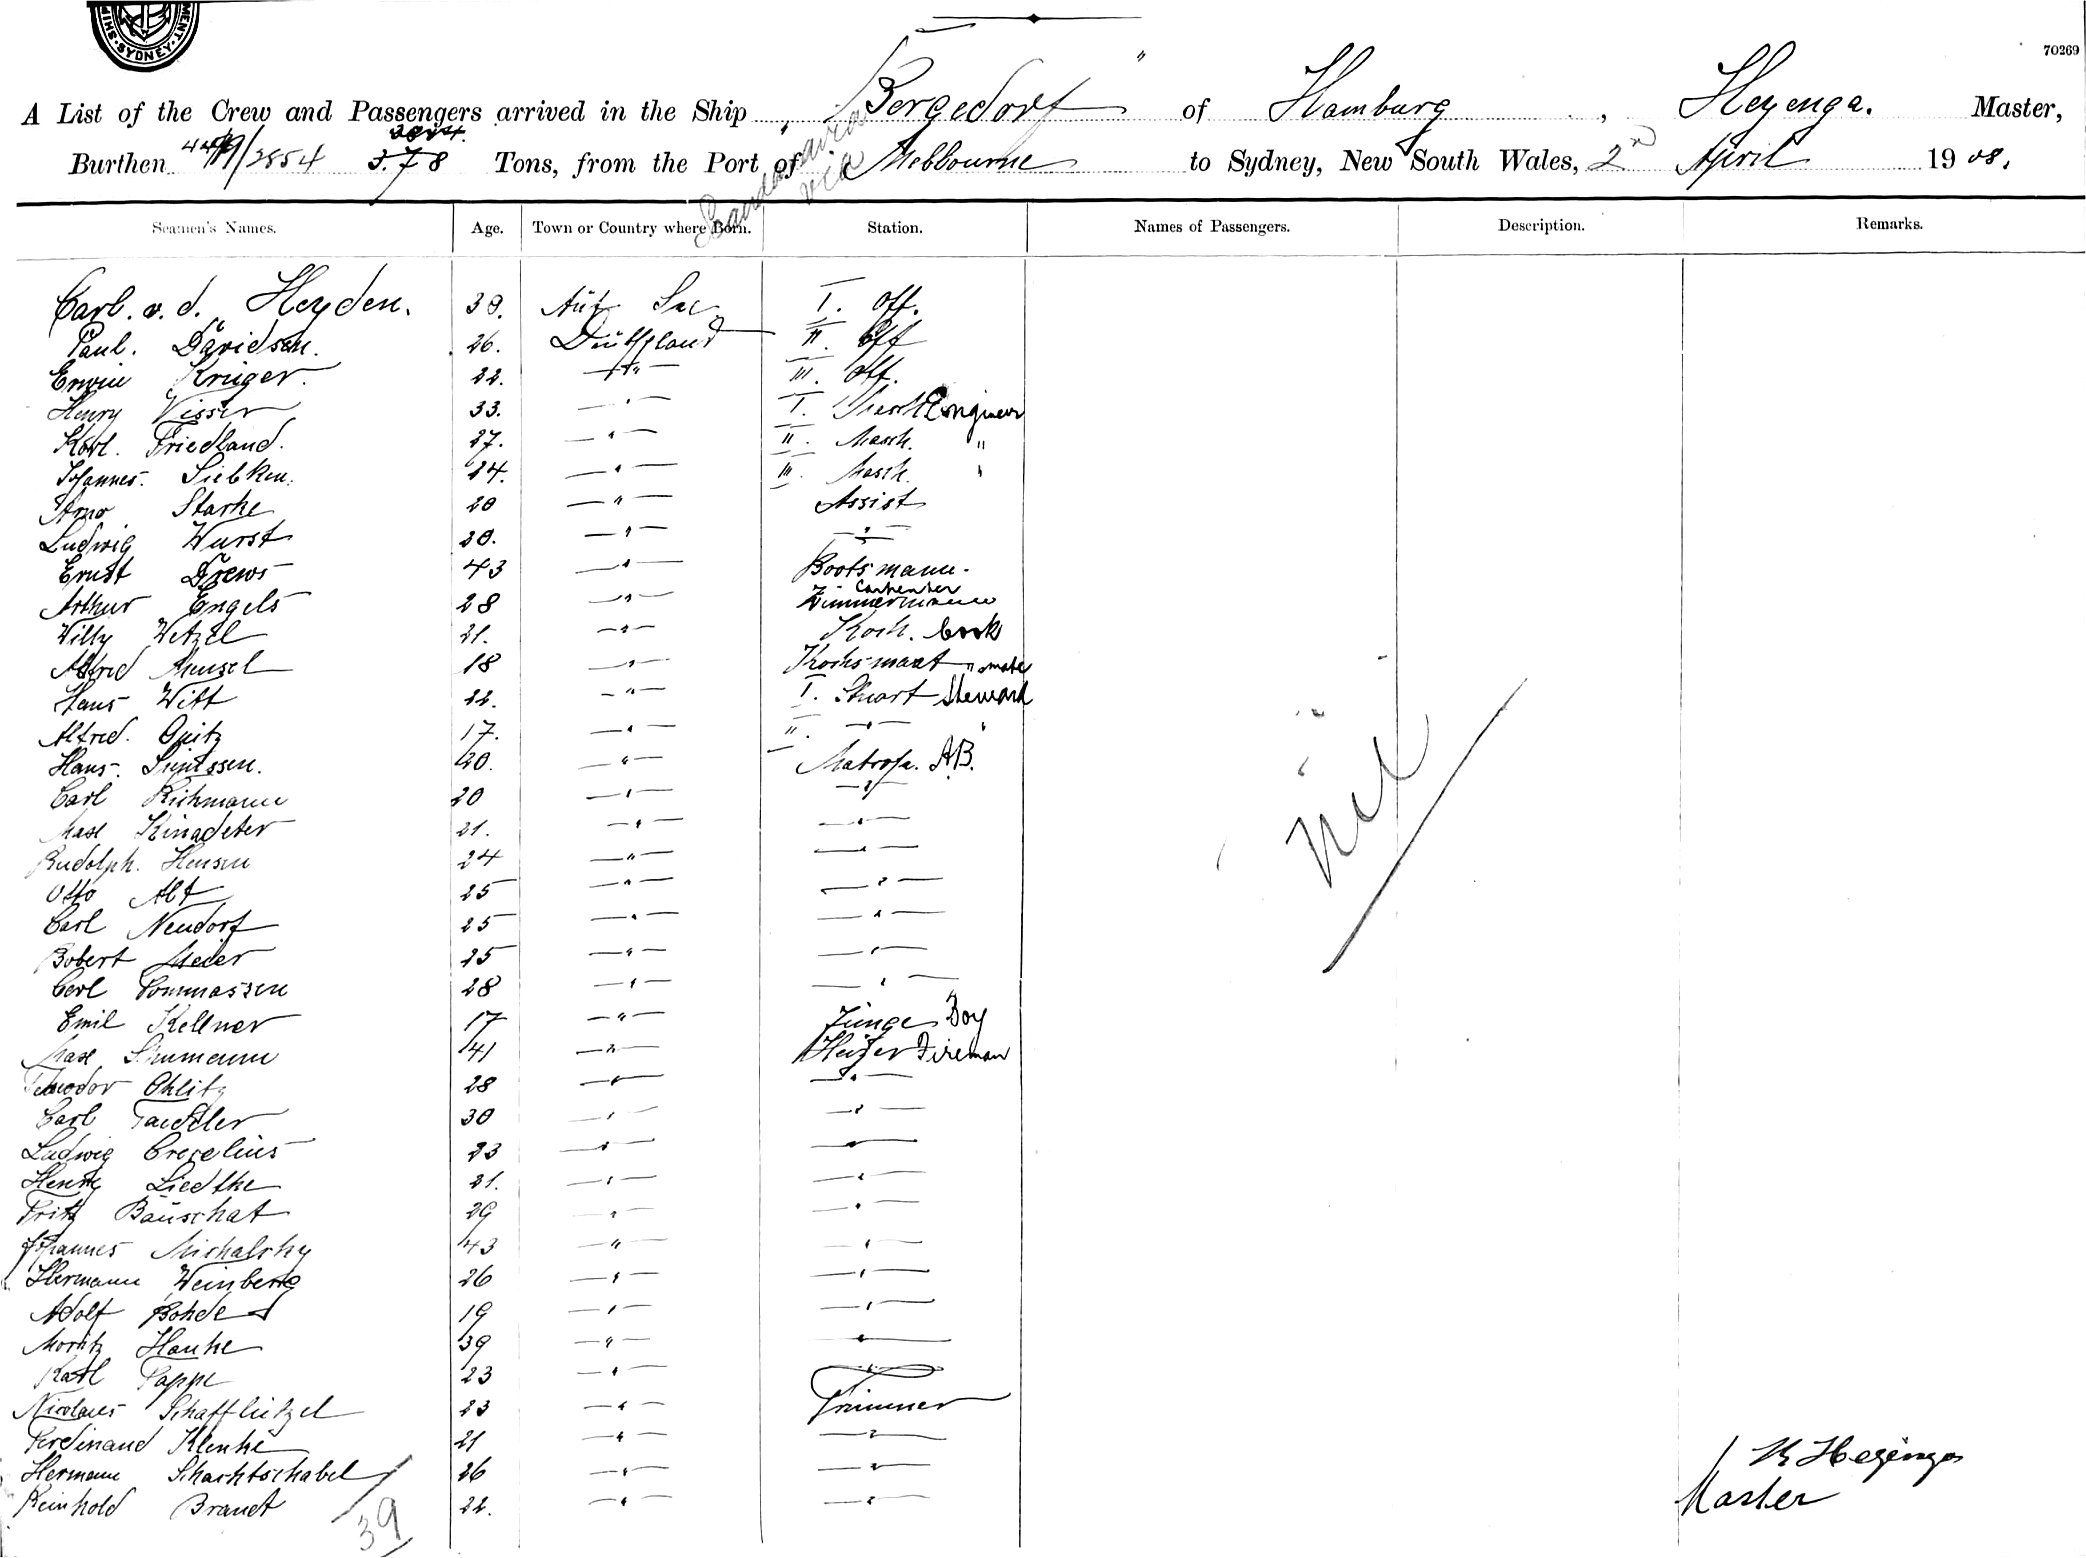 SYDNEY
70269
A List of the Crew and Passengers arrived in the Ship " Bergedorf " of Hamburg, Heyenga. Master,
Burthen 4419/2854 378 Tons, from the Port of via Melbourne to Sydney, New South Wales, 2nd April 1908.
Seamen's Names. Age. Town or Country where Born. Station. Names of Passengers. Description. Remarks.
Carl. v. d. Heyden. 30. I. Off.
Paul. Davidsen. 26. II. Off
Erwin Krüger. 22. " III. Off.
Henry Visser 33. " I. Engineer
Karl. Friedland. 27. " II. Masch. "
Johannes. Siebken. 24. " III. Masch. "
Arno Starke 20 " Assist
Ludwig Wurst 20. " "
Ernst Drews 43 " Bootsmann.
Arthur Engels 28 " Zimmermann Carpenter
Willy Wetzel 21. " Koch. Cook
Alfred Mensel 18 " Kochsmaat " mate
Hans Witt 22. " I. Stuart Steward
Alfred. Opitz 17. " II. " "
Hans. 20. " Matrose. A.B.
Carl Richmann 20 " "
Max Kinadeter 21. " "
Rudolph. Hensen 24 " "
Otto Alt 25 " "
Carl Neudorf 25 " "
Robert Meier 25 " "
Carl Tommassen 28 " "
Emil Kellner 17 " Junge Boy
Max Schumann 41 " Heizer Fireman
Theodor Ohlitz 28 " "
Carl 30 " "
Ludwig Crecelius 23 " "
Henry Liedtke 21. " "
Fritz Bauschat 29 " "
Johannes Michalsky 43 " "
Hermann Weinberg 26 " "
Adolf Bohde 19 " "
Moritz Hanke 39 " "
Karl Pappe 23 " "
Nicolaus Schafflützel 23 " Trimmer
Ferdinand Klenke 21 " "
Hermann Schachtschabel 26 " "
Reinhold Brandt 22. " "
39
nil
Heyenga
Master